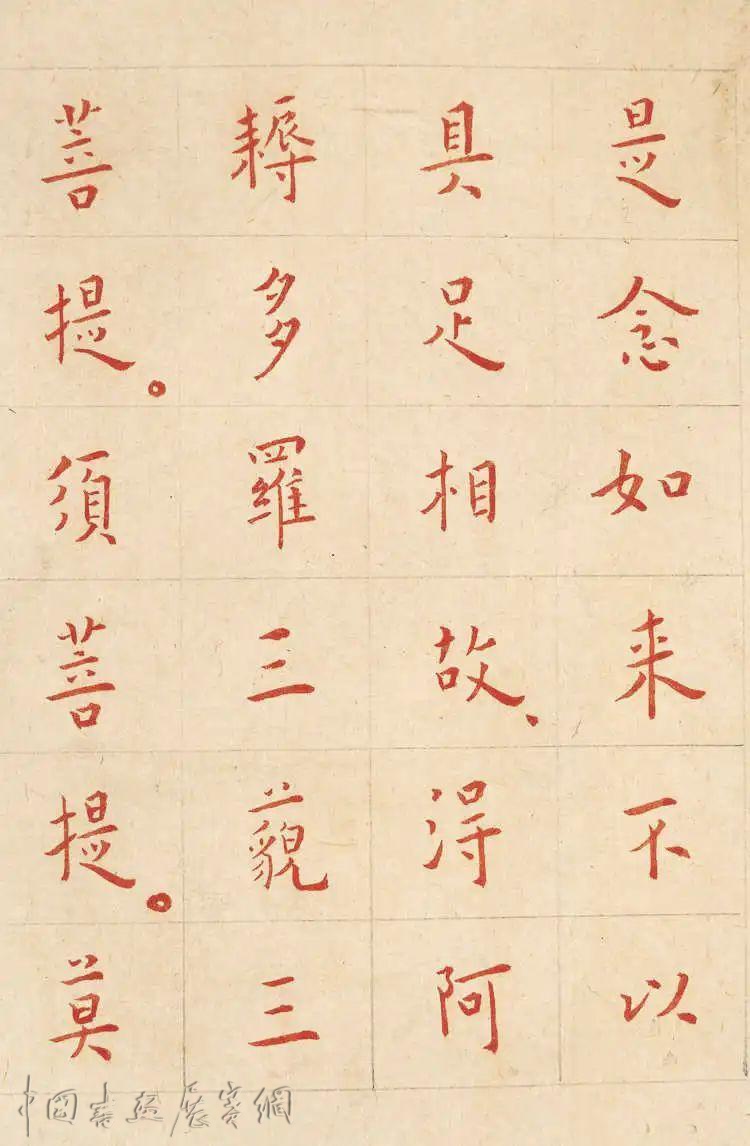 是念如来不以
具足相故、得阿
耨多羅三藐三
菩提。須
菩提。莫
中国书法展赛網